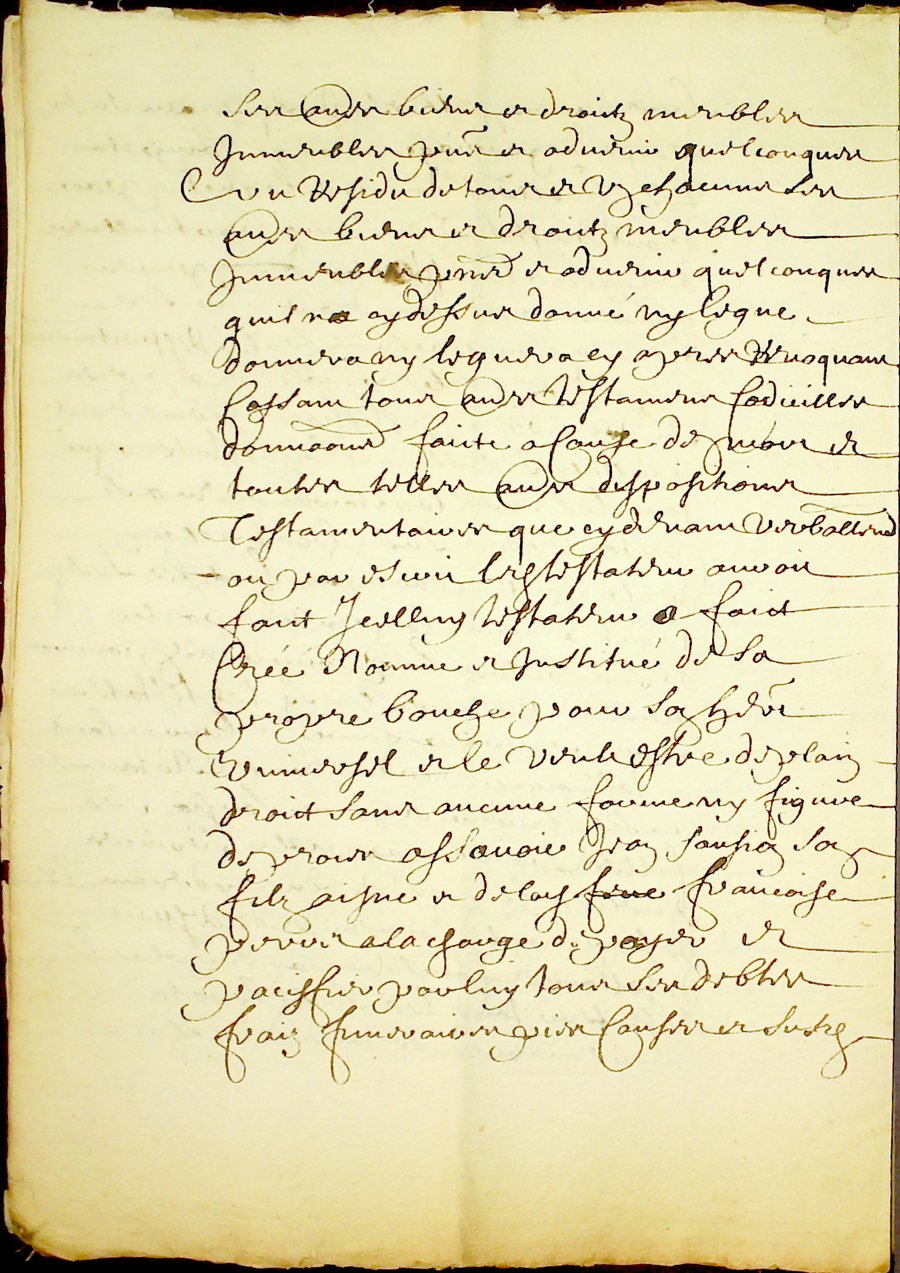 Ses autres biens et droictz meubles
Immeubles pñs et advenir quelconques
Et au Residu de tous et Ung chacuns ses
autres biens et droictz meubles
Immeubles pñs et advenir quelconques
quil na cy dessus donné ny legue
donnera ny leguera cy apres Revoquant
Cassant tous autres testamens Codicilles
donnaōns faicte a Cause de mort et
toutes telles autres dispositions
Testamentaires que cydevant verballemt
ou par escrit led testateur auroit
faict Icelluy testateur a faict
Créé Nomme et Institué de Sa
propre bouche pour son heŕ
Universel et le veult estre de plain
droict sans aucune forme ny figure
de proces assavoir Jean son
filz aisne et de lad feue francoise
a la charge de payer et
paciffier par luy tous ses debtes
fraiz funeraires pies Causes et